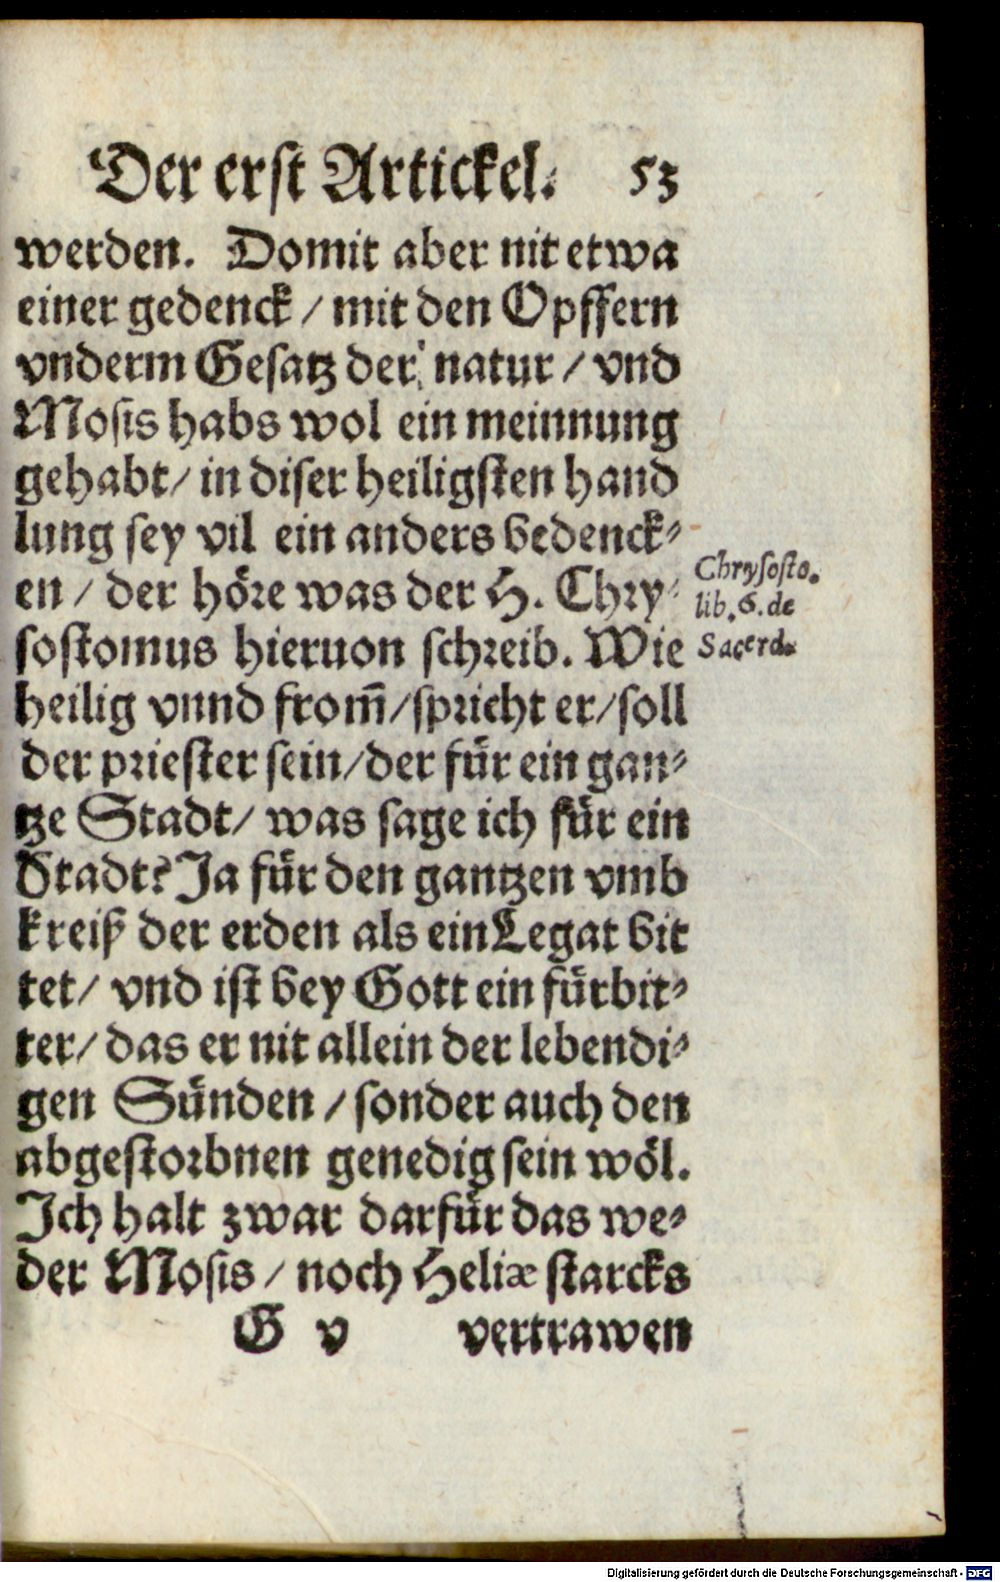 Der erst Artickel. 53
werden. Domit aber nit etwa
einer gedenck / mit den Opffern
vnderm Gesatz der natur / vnd
Mosis habs wol ein meinnung
gehabt / in diser heiligsten hand
lung sey vil ein anders bedenck⸗
en / der höre was der H. Chry⸗
sostomus hieruon schreib. Wie
heilig vnnd from̃ / spricht er / soll
der priester sein / der für ein gan⸗
tze Stadt / was sage ich für ein
Stadt? Ja für den gantzen vmb
kreiß der erden als ein Legat bit
tet / vnd ist bey Gott ein fürbit⸗
ter / das er nit allein der lebendi⸗
gen Sünden / sonder auch den
abgestorbnen genedig sein wöl.
Ich halt zwar darfür das we⸗
der Mosis / noch Heliæ starcks
G v vertrawen
Chrysosto.
lib. 6. de
Sacerd.
Digitalisierung gefördert durch die Deutsche Forschungsgemeinschaft - DFG